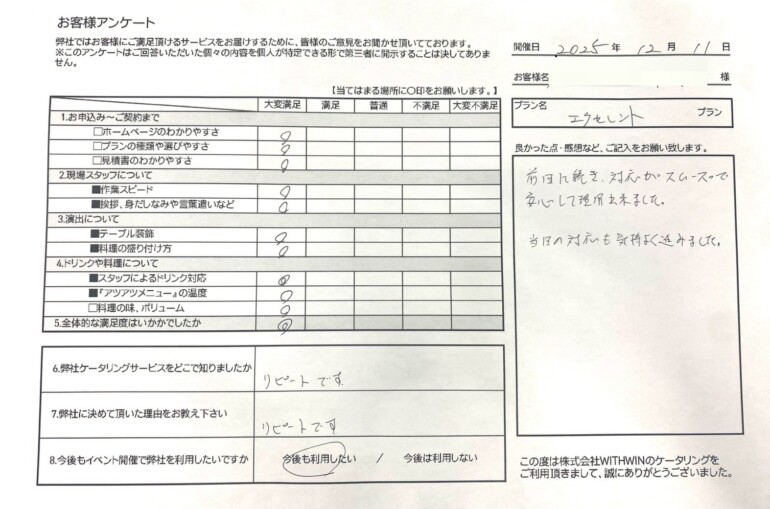 お客様アンケート
弊社ではお客様にご満足頂けるサービスをお届けするために、皆様のご意見をお聞かせ頂いております。
※このアンケートはご回答いただいた個々の内容を個人が特定できる形で第三者に開示することは決してありま
せん。
開催日 2025 年 12 月 11 日
お客様名 様
プラン名 エクセレント プラン
【当てはまる場所に○印をお願いします。】
大変満足 満足 普通 不満足 大変不満足
1.お申込み～ご契約まで
□ホームページのわかりやすさ ○
□プランの種類や選びやすさ ○
□見積書のわかりやすさ ○
2.現場スタッフについて
■作業スピード ○
■挨拶、身だしなみや言葉遣いなど ○
3.演出について
■テーブル装飾 ○
■料理の盛り付け方 ○
4.ドリンクや料理について
■スタッフによるドリンク対応 ○
■『アツアツメニュー』の温度 ○
□料理の味、ボリューム ○
5.全体的な満足度はいかがでしたか ○
6.弊社ケータリングサービスをどこで知りましたか リピートです
7.弊社に決めて頂いた理由をお教え下さい リピートです
8.今後もイベント開催で弊社を利用したいですか 今後も利用したい / 今後は利用しない
良かった点・感想など、ご記入をお願い致します。
前回に続き、対応がスムーズで
安心して理用出来ました。
当日の対応も気持よく
この度は株式会社WITHWINのケータリングを
ご利用頂きまして、誠にありがとうございました。